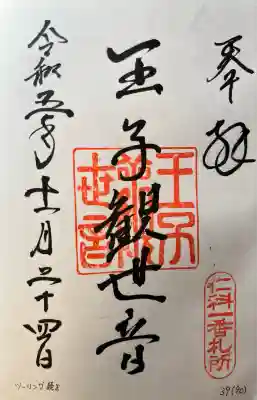 奉拝
王子観世音
王子観世音
仁科一番札所
令和五年十一月二十四日
ツーリング